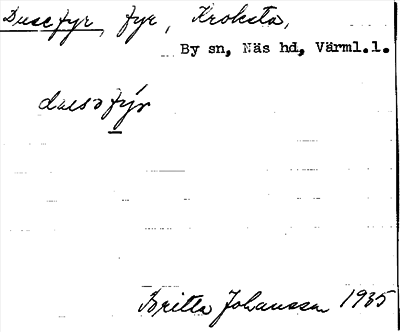 Dusefyr, fyr, Kroksta,
By sn, Näs hd, Värml.l.
dusəfýr
Britta Johansson 1935